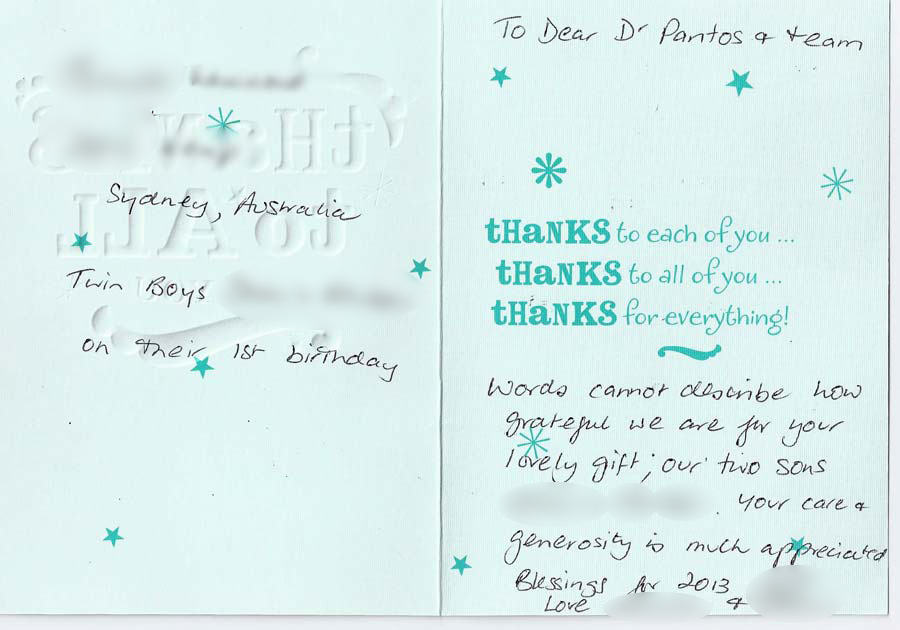 Sydney, Australia
Twin Boys
on their 1st birthday
To Dear Dr Pantos & team
tHaNKS to each of you ...
tHaNKS to all of you ...
tHaNKS for everything!
Words cannot describe how
grateful we are for your
lovely gift; our two sons
. Your care &
generosity is much appreciated
Blessings for 2013
Love &